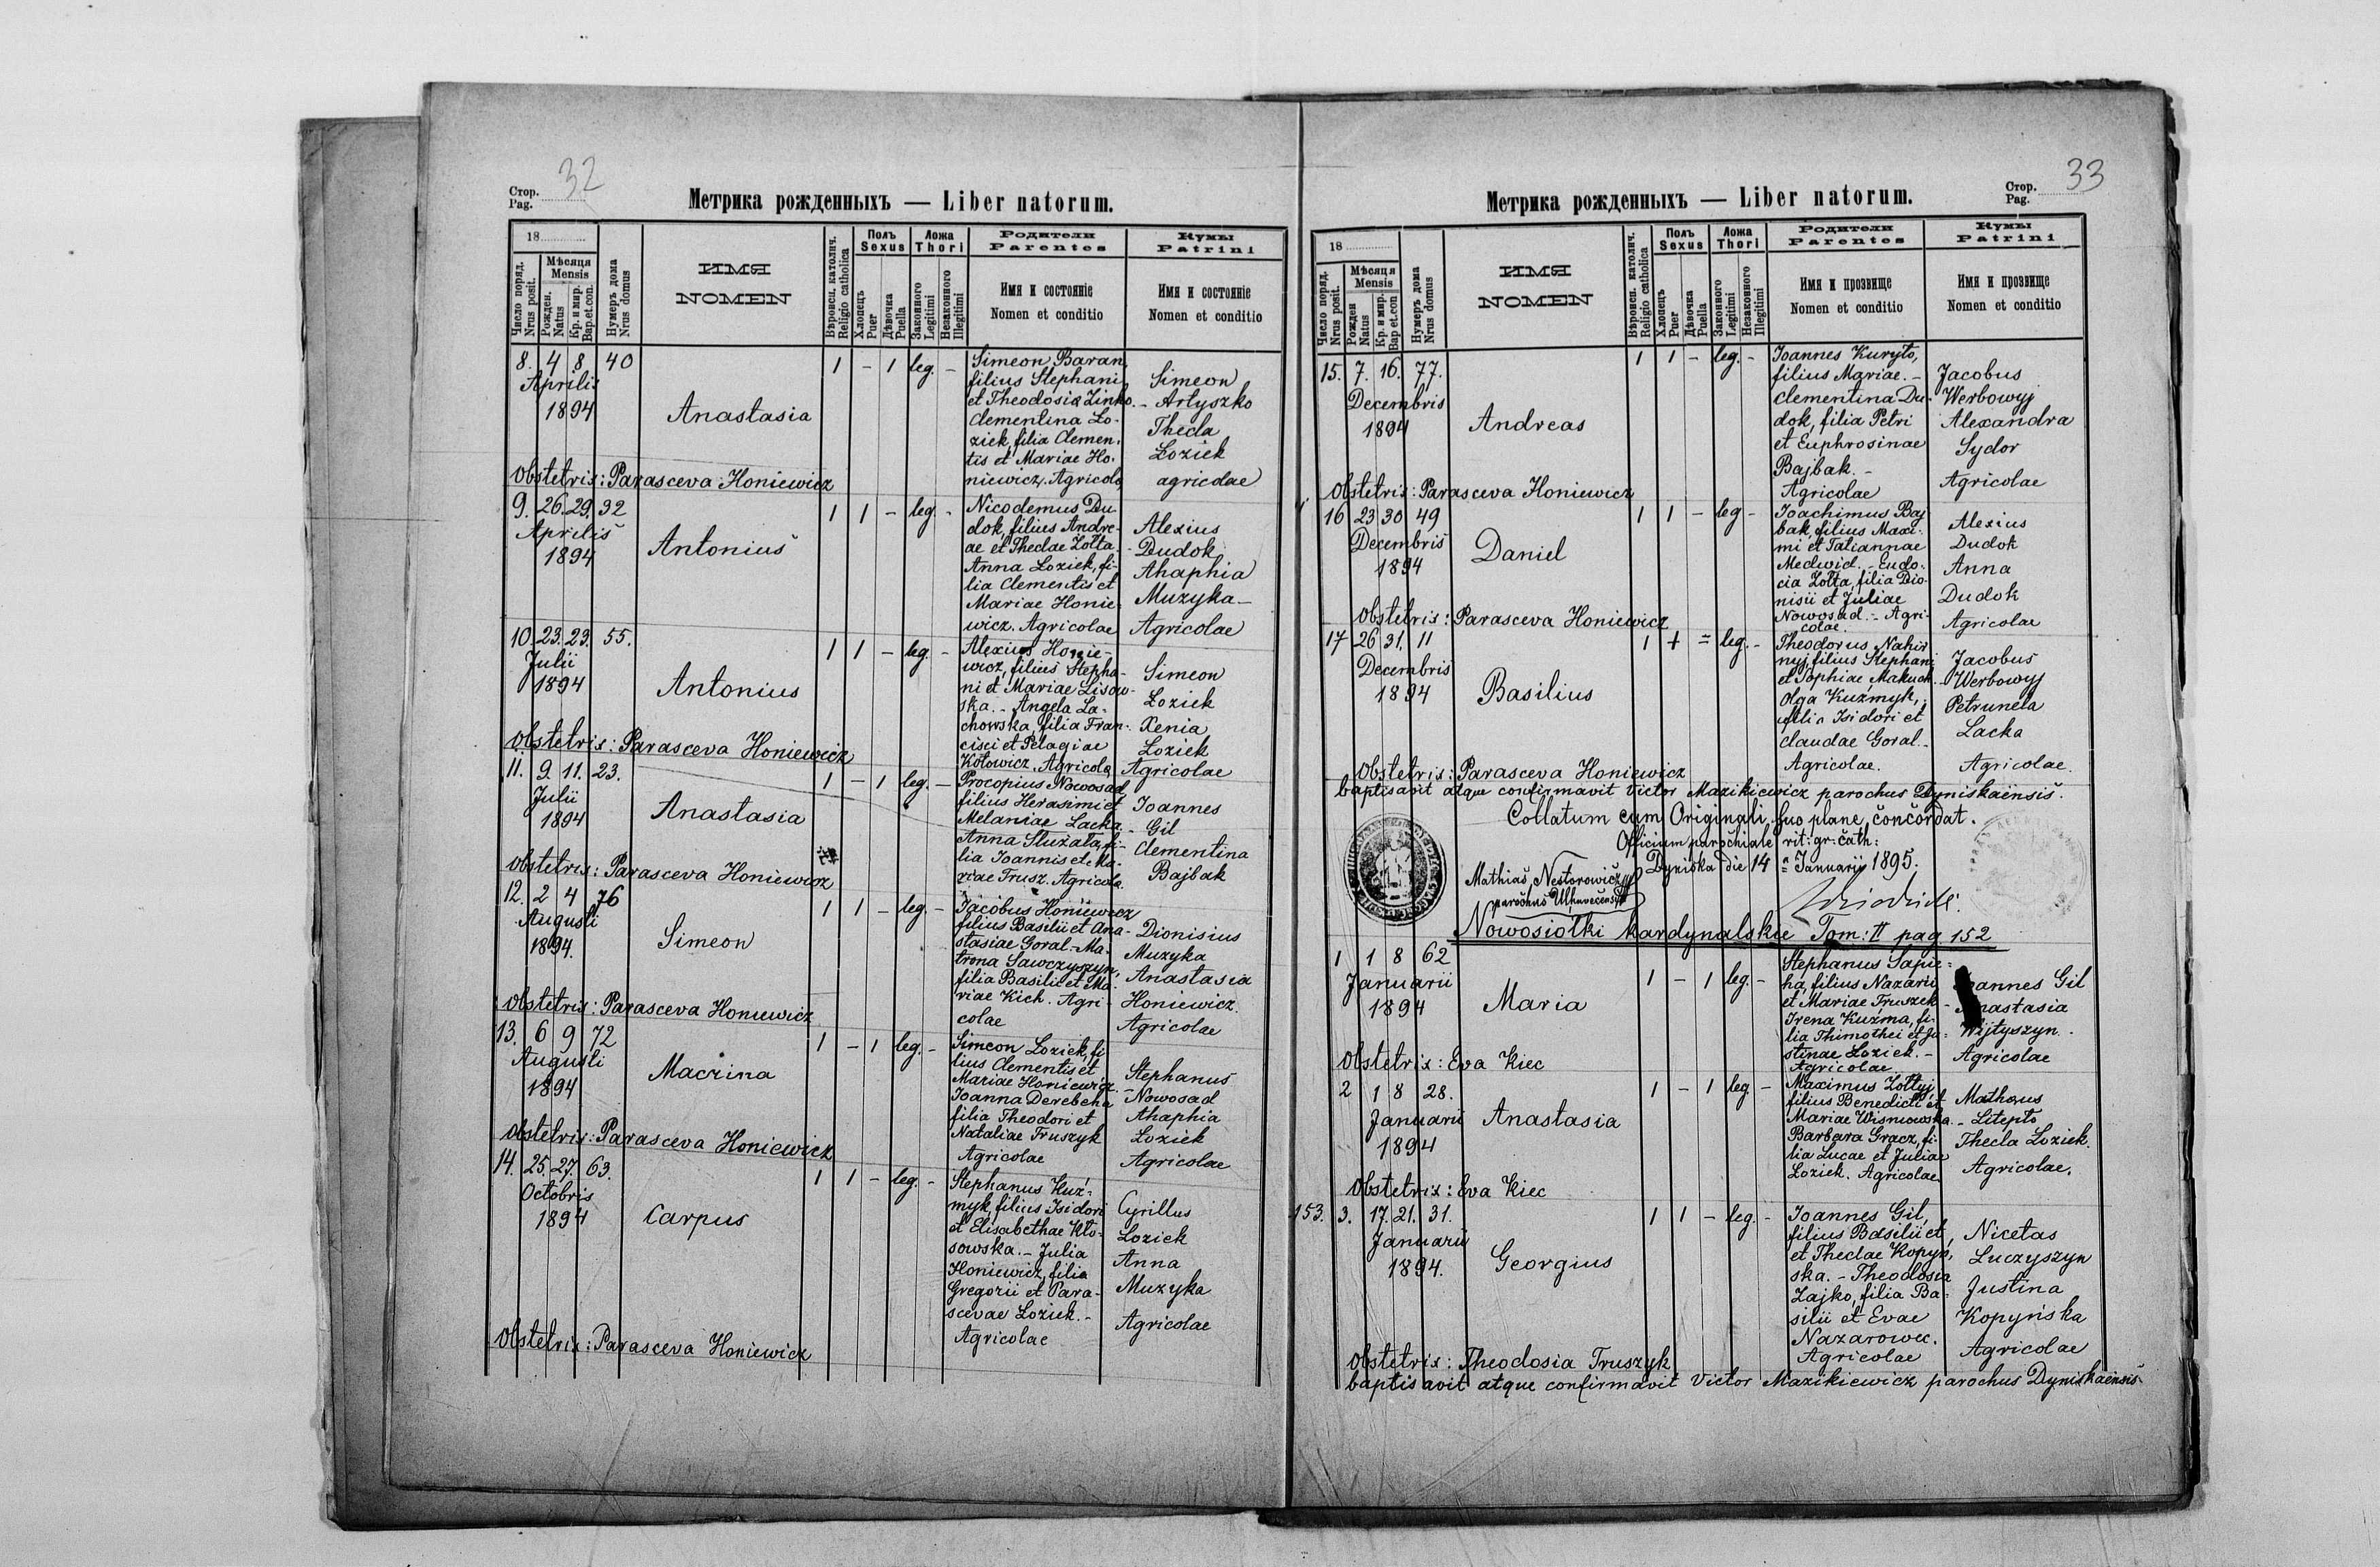 Стор.
Pag. 32
Метрика рожденныхъ — Liber natorum.
18
Число поряд.
Nrus posit.
Мѣсяця
Mensis
Рожден.
Natus
Кр. и мир.
Bap.et.con.
Нумеръ дома
Nrus domus
ИМЯ
NOMEN
Вѣроисп. католич.
Religio catholica
Полъ
Sexus
Хлопецъ
Puer
Дѣвочка
Puella
Ложа
Thori
Законного
Legitimi
Незаконного
Illegitimi
Родители
Parentes
Имя и состояніе
Nomen et conditio
Кумы
Patrini
Имя и состояніе
Nomen et conditio
8. 4 8 40
Aprilis
1894
Anastasia
1 - 1 leg. -
Simeon Baran,
filius Stephani
et Theodosia Zinko. -
Clementina Lo-
ziek, filia Clemen-
tis et Mariae Ho-
niewicz. Agricolae
Simeon
Artyszko
Thecla
Loziek
agricolae
Obstetrix: Parasceva Honiewicz
9. 26. 29. 32
Aprilis
1894
Antonius
1 1 - leg. -
Nicodemus Du
dok, filius Andre-
ae et Theclae Zolta. -
Anna Loziek, fi-
lia Clementis et
Mariae Honie-
wicz. Agricolae
Alexius
Dudok
Ahaphia
Muzyka -
Agricolae
10. 23. 23. 55.
Julii
1894
Antonius
1 1 - leg. -
Alexius Honie-
wicz, filius Stepha-
ni et Mariae Lisow-
ska. - Angela La-
chowska, filia Fran-
cisci et Pelagiae
Kotowicz. Agricolae
Simeon
Loziek
Xenia
Loziek
Agricolae
Obstetrix: Parasceva Honiewicz
11. 9. 11. 23.
Julii
1894
Anastasia
1 - 1 leg. -
Procopius Nowosad,
filius Herasimi et
Melaniae Lacka. -
Anna Służała, fi-
lia Joannis et Ma-
riae Trusz. Agricolae
Joannes
Gil
Clementina
Bajbak
Obstetrix: Parasceva Honiewicz
12. 2 4 76
Augusti
1894.
Simeon
1 1 - leg. -
Jacobus Honiewicz
filius Basilii et Ana-
stasiae Goral. - Ma-
trona Sawczyszyn,
filia Basilii et Ma-
riae Kich. Agri-
colae
Dionisius
Muzyka
Anastasia
Honiewicz.
Agricolae
Obstetrix: Parasceva Honiewicz
13. 6 9 72
Augusti
1894
Macrina
1 - 1 leg. -
Simeon Loziek, fi
lius Clementis et
Mariae Honiewicz. -
Joanna Derebcha
filia Theodori et
Nataliae Truszyk
Agricolae
Stephanus
Nowosad
Ahaphia
Loziek
Agricolae
Obstetrix: Parasceva Honiewicz
14. 25. 27. 63.
Octobris
1894
Carpus
1 1 - leg. -
Stephanus Kuź-
myk, filius Isidori
et Elisabethae Kło-
sowska. - Julia
Honiewicz, filia
Gregorii et Para-
scevae Loziek. -
Agricolae
Cyrillus
Loziek
Anna
Muzyka
Agricolae
Obstetrix: Parasceva Honiewicz
Метрика рожденныхъ — Liber natorum.
Стор.
Pag. 33
18
Число поряд.
Nrus posit.
Мѣсяця
Mensis
Рожден
Natus
Кр. и мир.
Bap et.con
Нумеръ дома
Nrus domus
ИМЯ
NOMEN
Вѣроисп. католич.
Religio catholica
Полъ
Sexus
Хлопецъ
Puer
Дѣвочка
Puella
Ложа
Thori
Законного
Legitimi
Незаконного
Illegitimi
Родители
Parentes
Имя и прозвище
Nomen et conditio
Кумы
Patrini
Имя и прозвище
Nomen et conditio
15. 7. 16. 77.
Decembris
1894
Andreas
1 1 - leg. -
Joannes Kuryło,
filius Mariae. -
Clementina Du-
dok, filia Petri
et Euphrosinae
Bajbak. -
Agricolae
Jacobus
Werbowyj
Alexandra
Sydor
Agricolae
Obstetrix: Parasceva Honiewicz
16 23 30 49
Decembris
1894
Daniel
1 1 - leg -
Joachimus Baj
bak, filius Maxi-
mi et Tatiannae
Medwid. - Eudo-
cia Zolta, filia Dio-
nisii et Juliae
Nowosad. - Agri-
colae.
Alexius
Dudok
Anna
Dudok
Agricolae
Obstetrix: Parasceva Honiewicz
17 26 31. 11
Decembris
1894
Basilius
1 + = leg. -
Theodorus Nahir
nyj, filius Stephani
et Sophiae Makuch. -
Olga Kuźmyk,
filia Isidori et
Claudae Goral. -
Agricolae.
Jacobus
Werbowyj
Petrunela
Lacka
Agricolae.
Obstetrix: Parasceva Honiewicz
baptisavit atque confirmavit Victor Mazikiewicz parochus Dyniskaënsis.
Collatum cum Originali suo plane concordat.
Officium parochiale rit: gr: cath:
Dyniska die 14 Januarii 1895.
Mathias Nestorowicz
parochus Uhnovecensis
Nowosiółki kardynalskie Tom: II pag. 152
1 1 8 62
Januarii
1894
Maria
1 - 1 leg. -
Stephanus Sapie-
ha, filius Nazarii
et Mariae Truszek -
Irena Kuźma, fi-
lia Thimothei et Ju-
stinae Loziek. -
Agricolae
Joannes Gil
Anastasia
Wijtyszyn.
Agricolae
Obstetrix: Eva Kiec
2 1 8 28.
Januarii
1894
Anastasia
1 - 1 leg -
Maximus Zołtyj,
filius Benedicti et
Mariae Wisniowska. -
Barbara Gracz, fi-
lia Lucae et Juliae
Loziek. Agricolae
Mathaus
Litepto
Thecla Loziek.
Agricolae.
Obstetrix: Eva Kiec
153. 3. 17. 21. 31.
Januarii
1894.
Georgius
1 1 - leg. -
Joannes Gil,
filius Basilii et
et Theclae Kopyń,
ska. - Theodosia
Zajko, filia Ba-
silii et Evae
Nazarowec.
Agricolae
Nicetas
Luczyszyn
Justina
Kopyńska
Agricolae
Obstetrix: Theodosia Truszyk
baptisavit atque confirmavit Victor Mazikiewicz parochus Dyniskaënsis